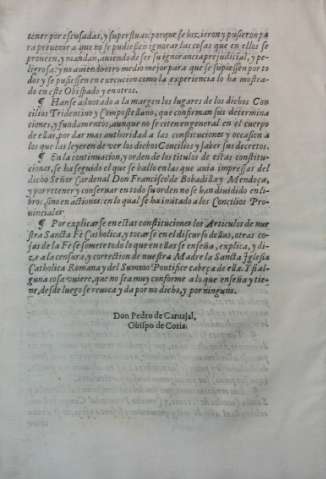 tener por escusadas, y superfluas: porque se hizieron y pusieron pa
ra preuenir a que no se pudiessen ignorar las cosas que en ellos se
proueen, y mandan, auiendo de ser su ignorancia prejudicial, y pe-
ligrosa: y no auiendo otro medio mejor para que se supiessen por to
dos y se pusiessen en execucion como la experiencia lo ha mostra
do en este Obispado y en otros.
¶ Hanse adnotado a la margen los lugares de los dichos Con
cilios Tridentino, y Compostellano, que confirman sus determina
ciones, y fundamentos, aunque no se citen en general en el cuerpo
de ellas, por dar mas authoridad a las constituciones y occasion a
los que las leyeren de ver los dichos Concilios y saber sus decretos.
¶ En la continuacion, y orden de los titulos de estas constitu
ciones, se ha seguido el que se hallo en las que auia impressas del
dicho Señor Cardenal Don Francisco de Bobadilla y Mendoça,
y por retener y conseruar en todo su orden no se han diuidido en li-
bros: sino en actiones: en lo qual se ha imitado a los Concilios Pro
uinciales
¶ Por explicarse en estas constituciones los Articulos de nue
stra Sancta Fe Catholica, y tocarse en el discurso de ellas, otras co
sas de la Fe se somete todo lo que en ellas se enseña, explica, y di-
ze a la censura, y correction de nuestra Madre la Sancta Iglesia
Catholica Romana y del Summo Pontifice cabeça de ella. Y si al-
guna cosa vuiere, que no sea muy conforme a lo que enseña y tie-
ne, desde luego se reuoca y da por no dicho, y por ninguno.
Don Pedro de Caruajal,
Obispo de Coria.